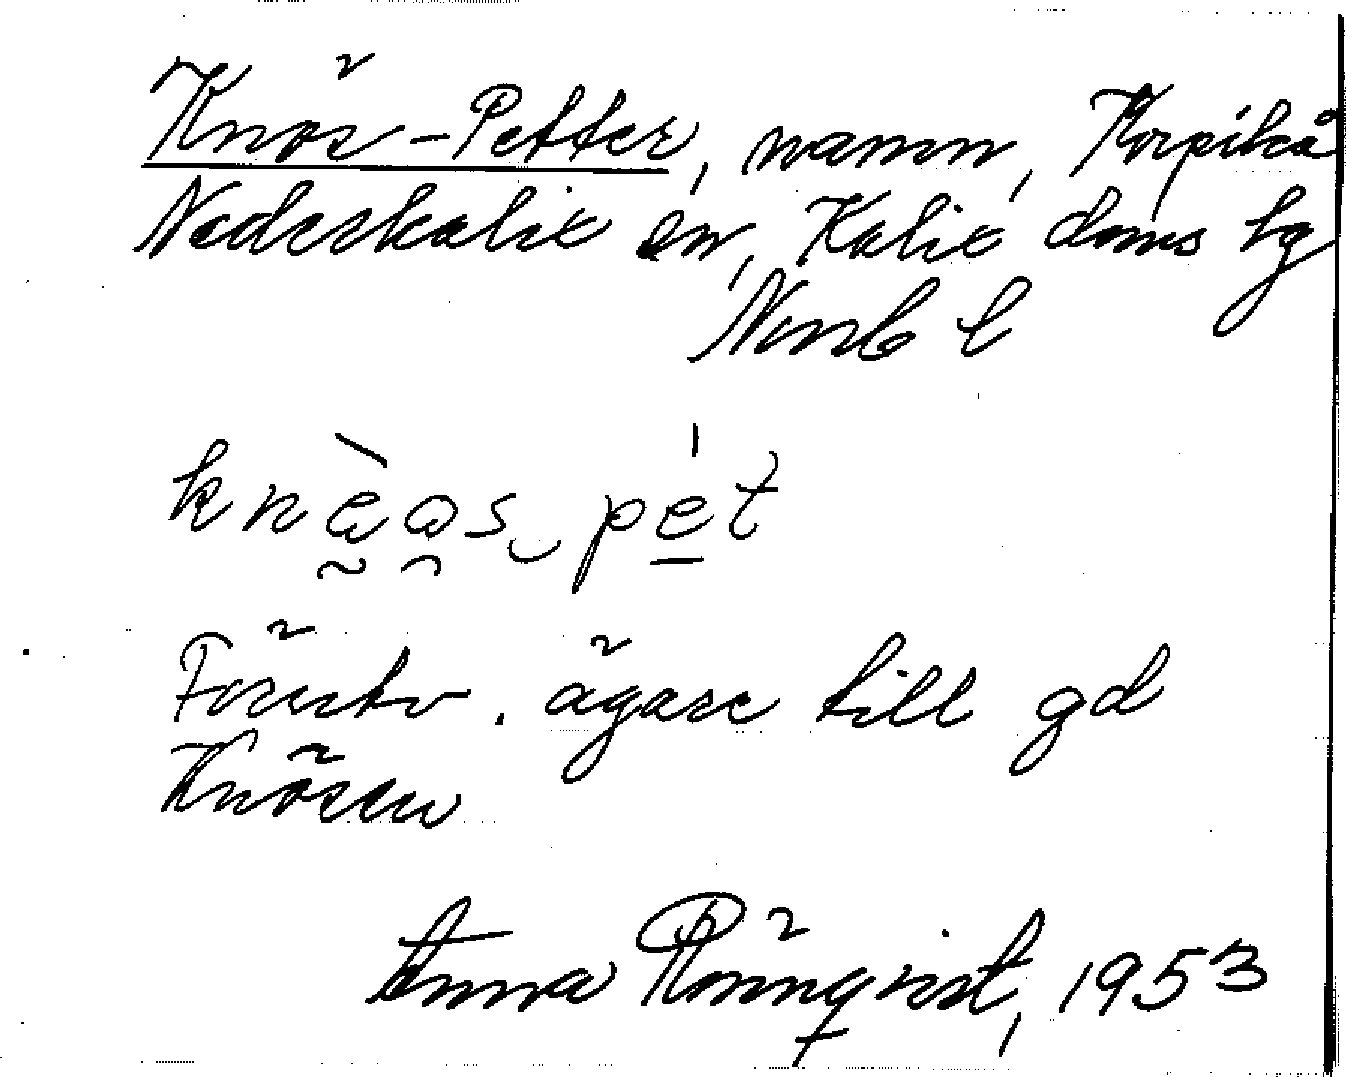 Knös-Petter, namn, Korpikå
Nederkalix sn, Kalix doms lg
Norrb l
knè̱a̱s‿pe̱t
ägare till gd
Knösen
Anna Rönnqvist, 1953